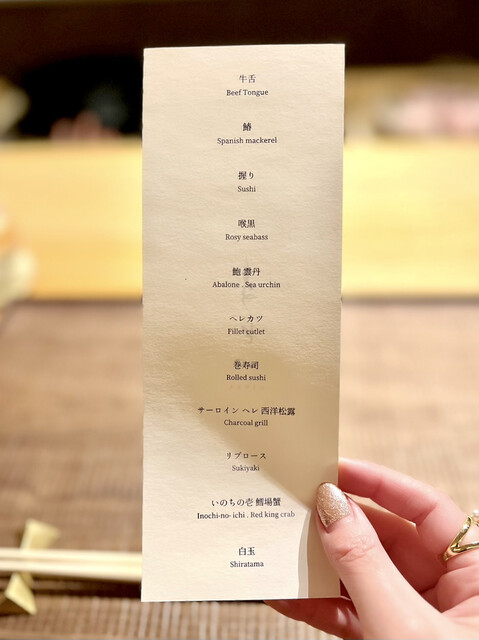 牛舌
Beef Tongue
鰆
Spanish mackerel
握り
Sushi
喉黒
Rosy seabass
鮑 雲丹
Abalone . Sea urchin
ヘレカツ
Fillet cutlet
巻寿司
Rolled sushi
サーロイン ヘレ 西洋松露
Charcoal grill
リブロース
Sukiyaki
いのちの壱 鱈場蟹
Inochi-no- ichi . Red king crab
白玉
Shiratama